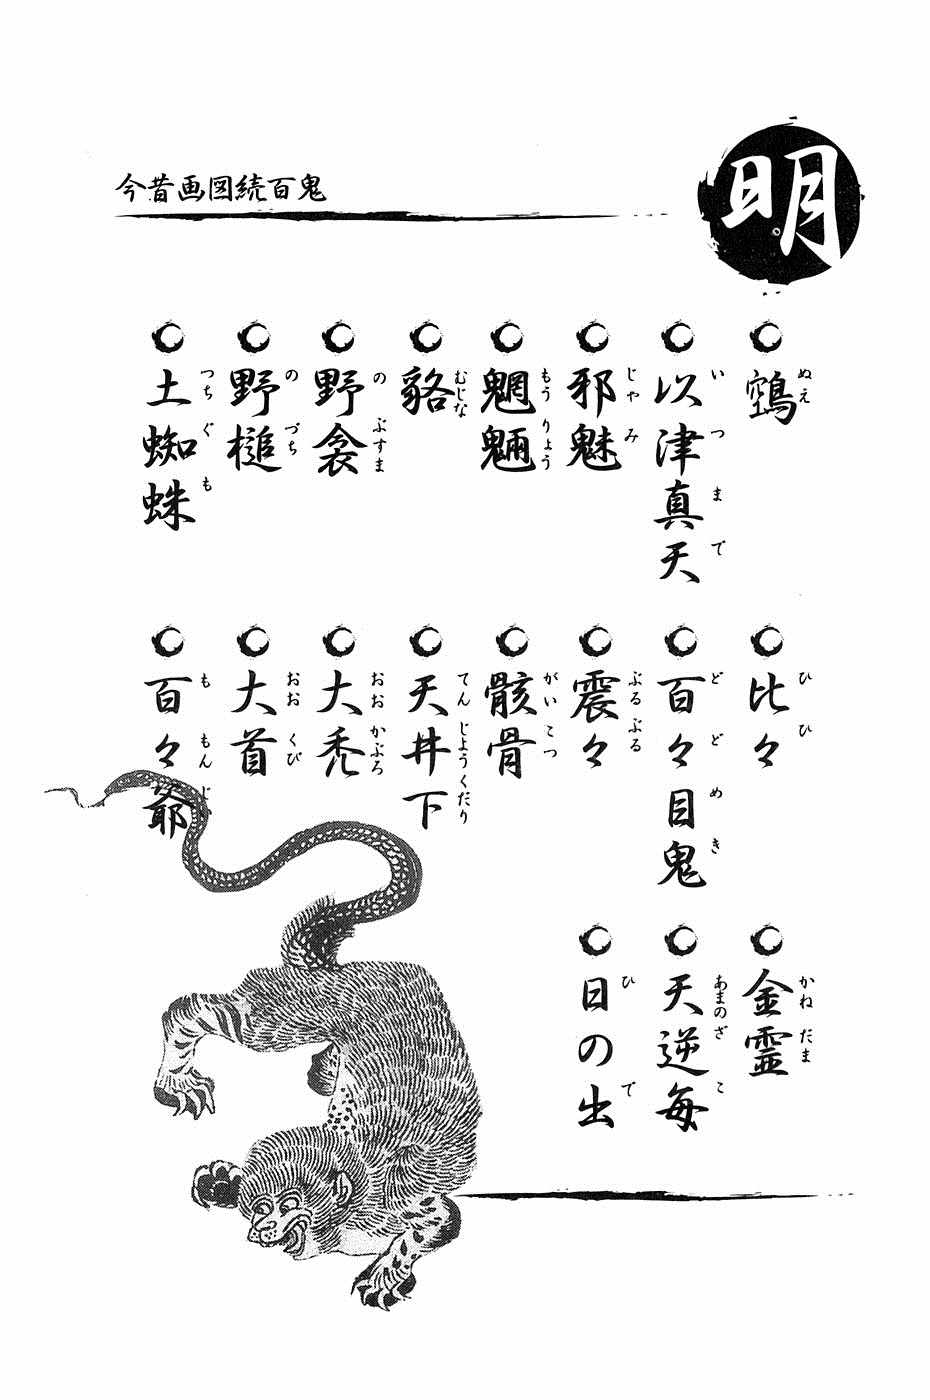 明
今昔画図続百鬼
鵼
ぬえ
以津真天
いつまで
邪魅
じゃみ
魍魎
もうりょう
貉
むじな
野衾
のぶすま
野槌
のづち
土蜘蛛
つちぐも
比々
ひひ
百々目鬼
どどめき
震々
ぶるぶる
骸骨
がいこつ
天井下
てんじょうくだり
大禿
おおかぶろ
大首
おおくび
百々爺
ももんじい
金霊
かねだま
天逆毎
あまのざこ
日の出
ひで